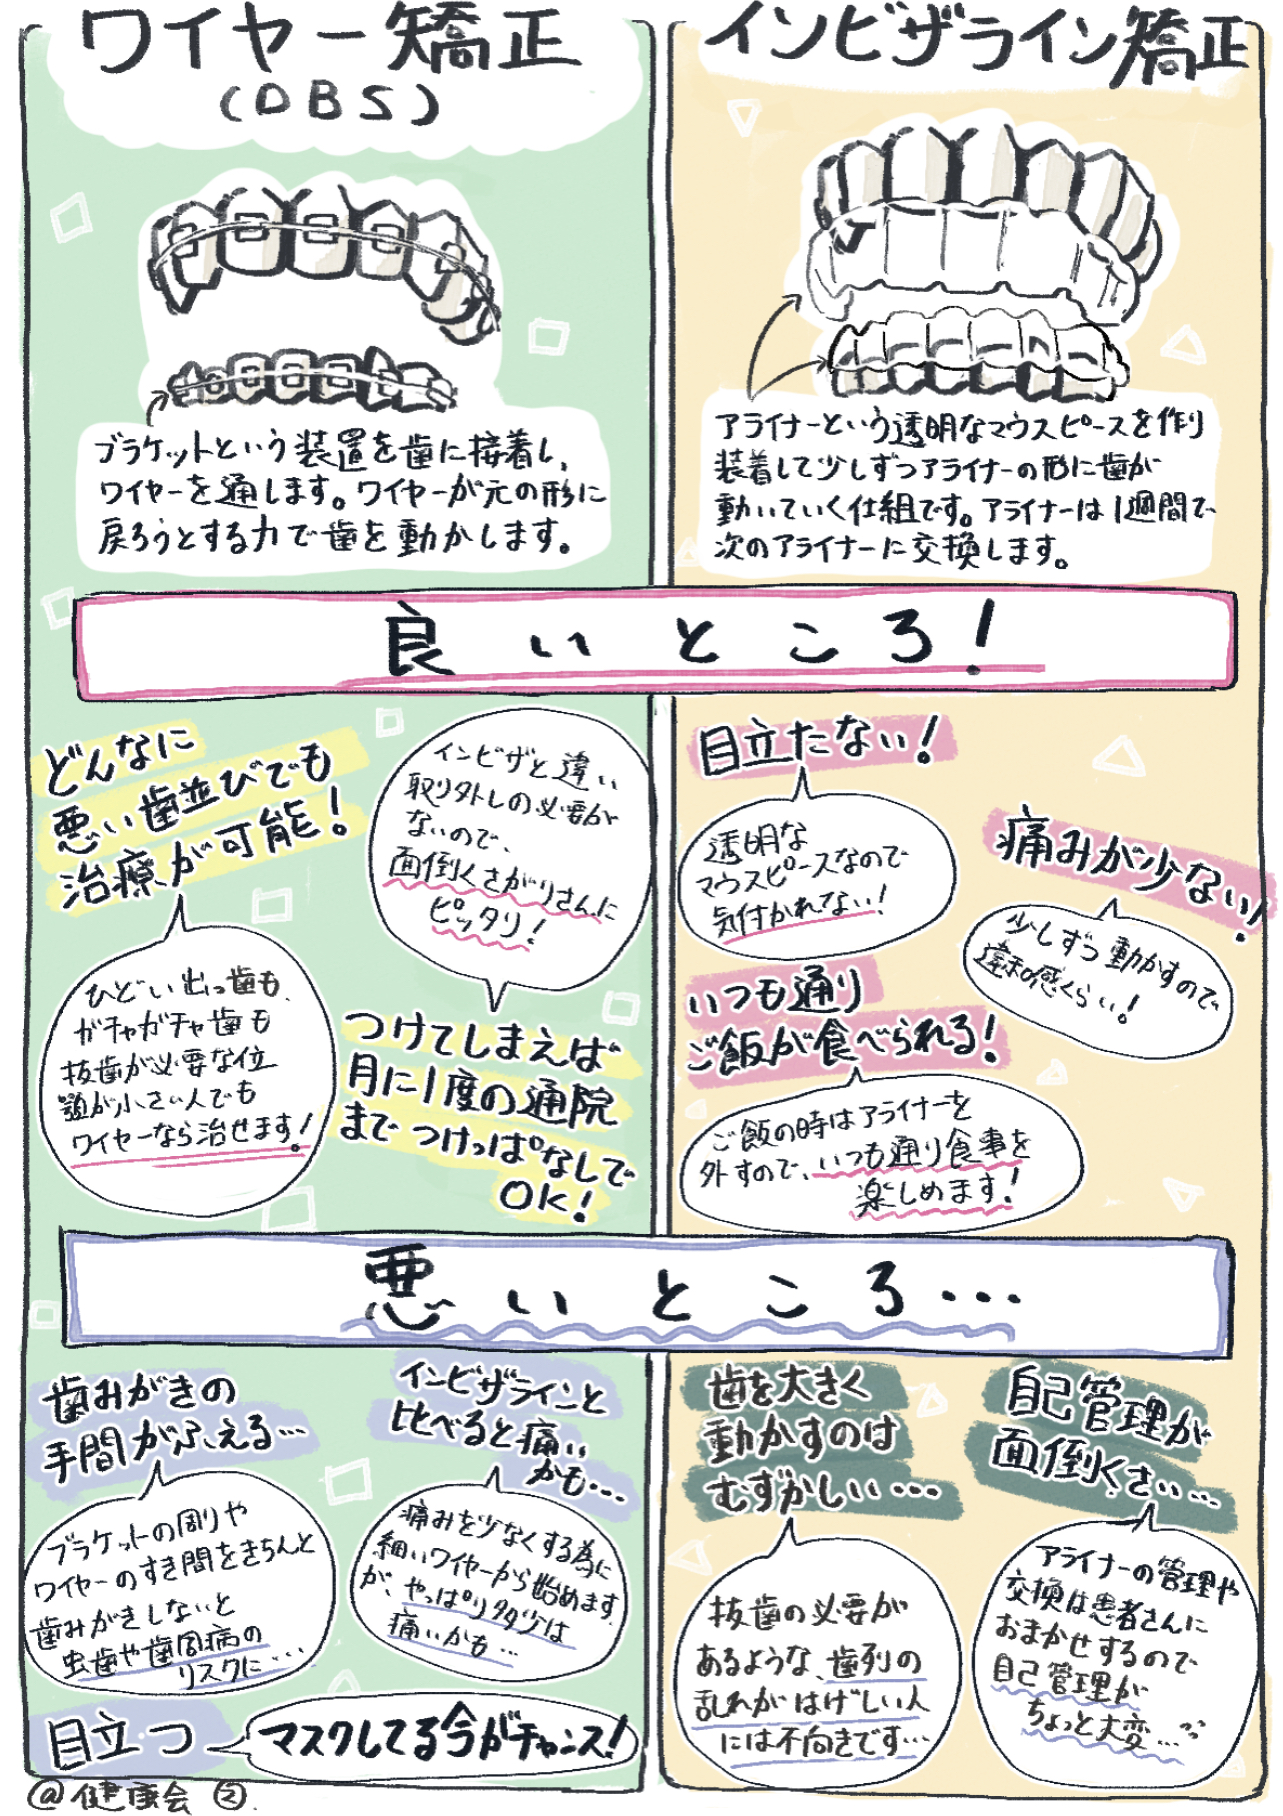 ワイヤー矯正
(DBS)
ブラケットという装置を歯に接着し、
ワイヤーを通します。ワイヤーが元の形に
戻ろうとする力で歯を動かします。
インビザライン矯正
アライナーという透明なマウスピースを作り
装着して少しずつアライナーの形に歯が
動いていく仕組です。アライナーは1週間で
次のアライナーに交換します。
良いところ!
どんなに
悪い歯並びでも
治療が可能!
ひどい出っ歯も、
ガチャガチャ歯も
抜歯が必要な位
顎が小さい人でも
ワイヤーなら治せます!
インビザと違い
取り外しの必要が
ないので、
面倒くさがりさんに
ピッタリ!
つけてしまえば
月に1度の通院
までつけっぱなしで
OK!
目立たない!
透明な
マウスピースなので
気付かれない!
痛みが少ない!
少しずつ動かすので
違和感くらい!
いつも通り
ご飯が食べられる!
ご飯の時はアライナーを
外すので、いつも通り食事を
楽しめます!
悪いところ…
歯みがきの
手間がふえる…
ブラケットの周りや
ワイヤーのすき間をきちんと
歯みがきしないと
虫歯や歯周病の
リスクに…
インビザラインと
比べると痛い
かも…
痛みを少なくする為に
細いワイヤーから始めます
が、やっぱり多少は
痛いかも…
目立つ
マスクしてる今がチャンス!
歯を大きく
動かすのは
むずかしい…
抜歯の必要が
あるような、歯列の
乱れがはげしい人
には不向きです…
自己管理が
面倒くさい…
アライナーの管理や
交換は患者さんに
おまかせするので
自己管理が
ちょっと大変…
@健康会 ②